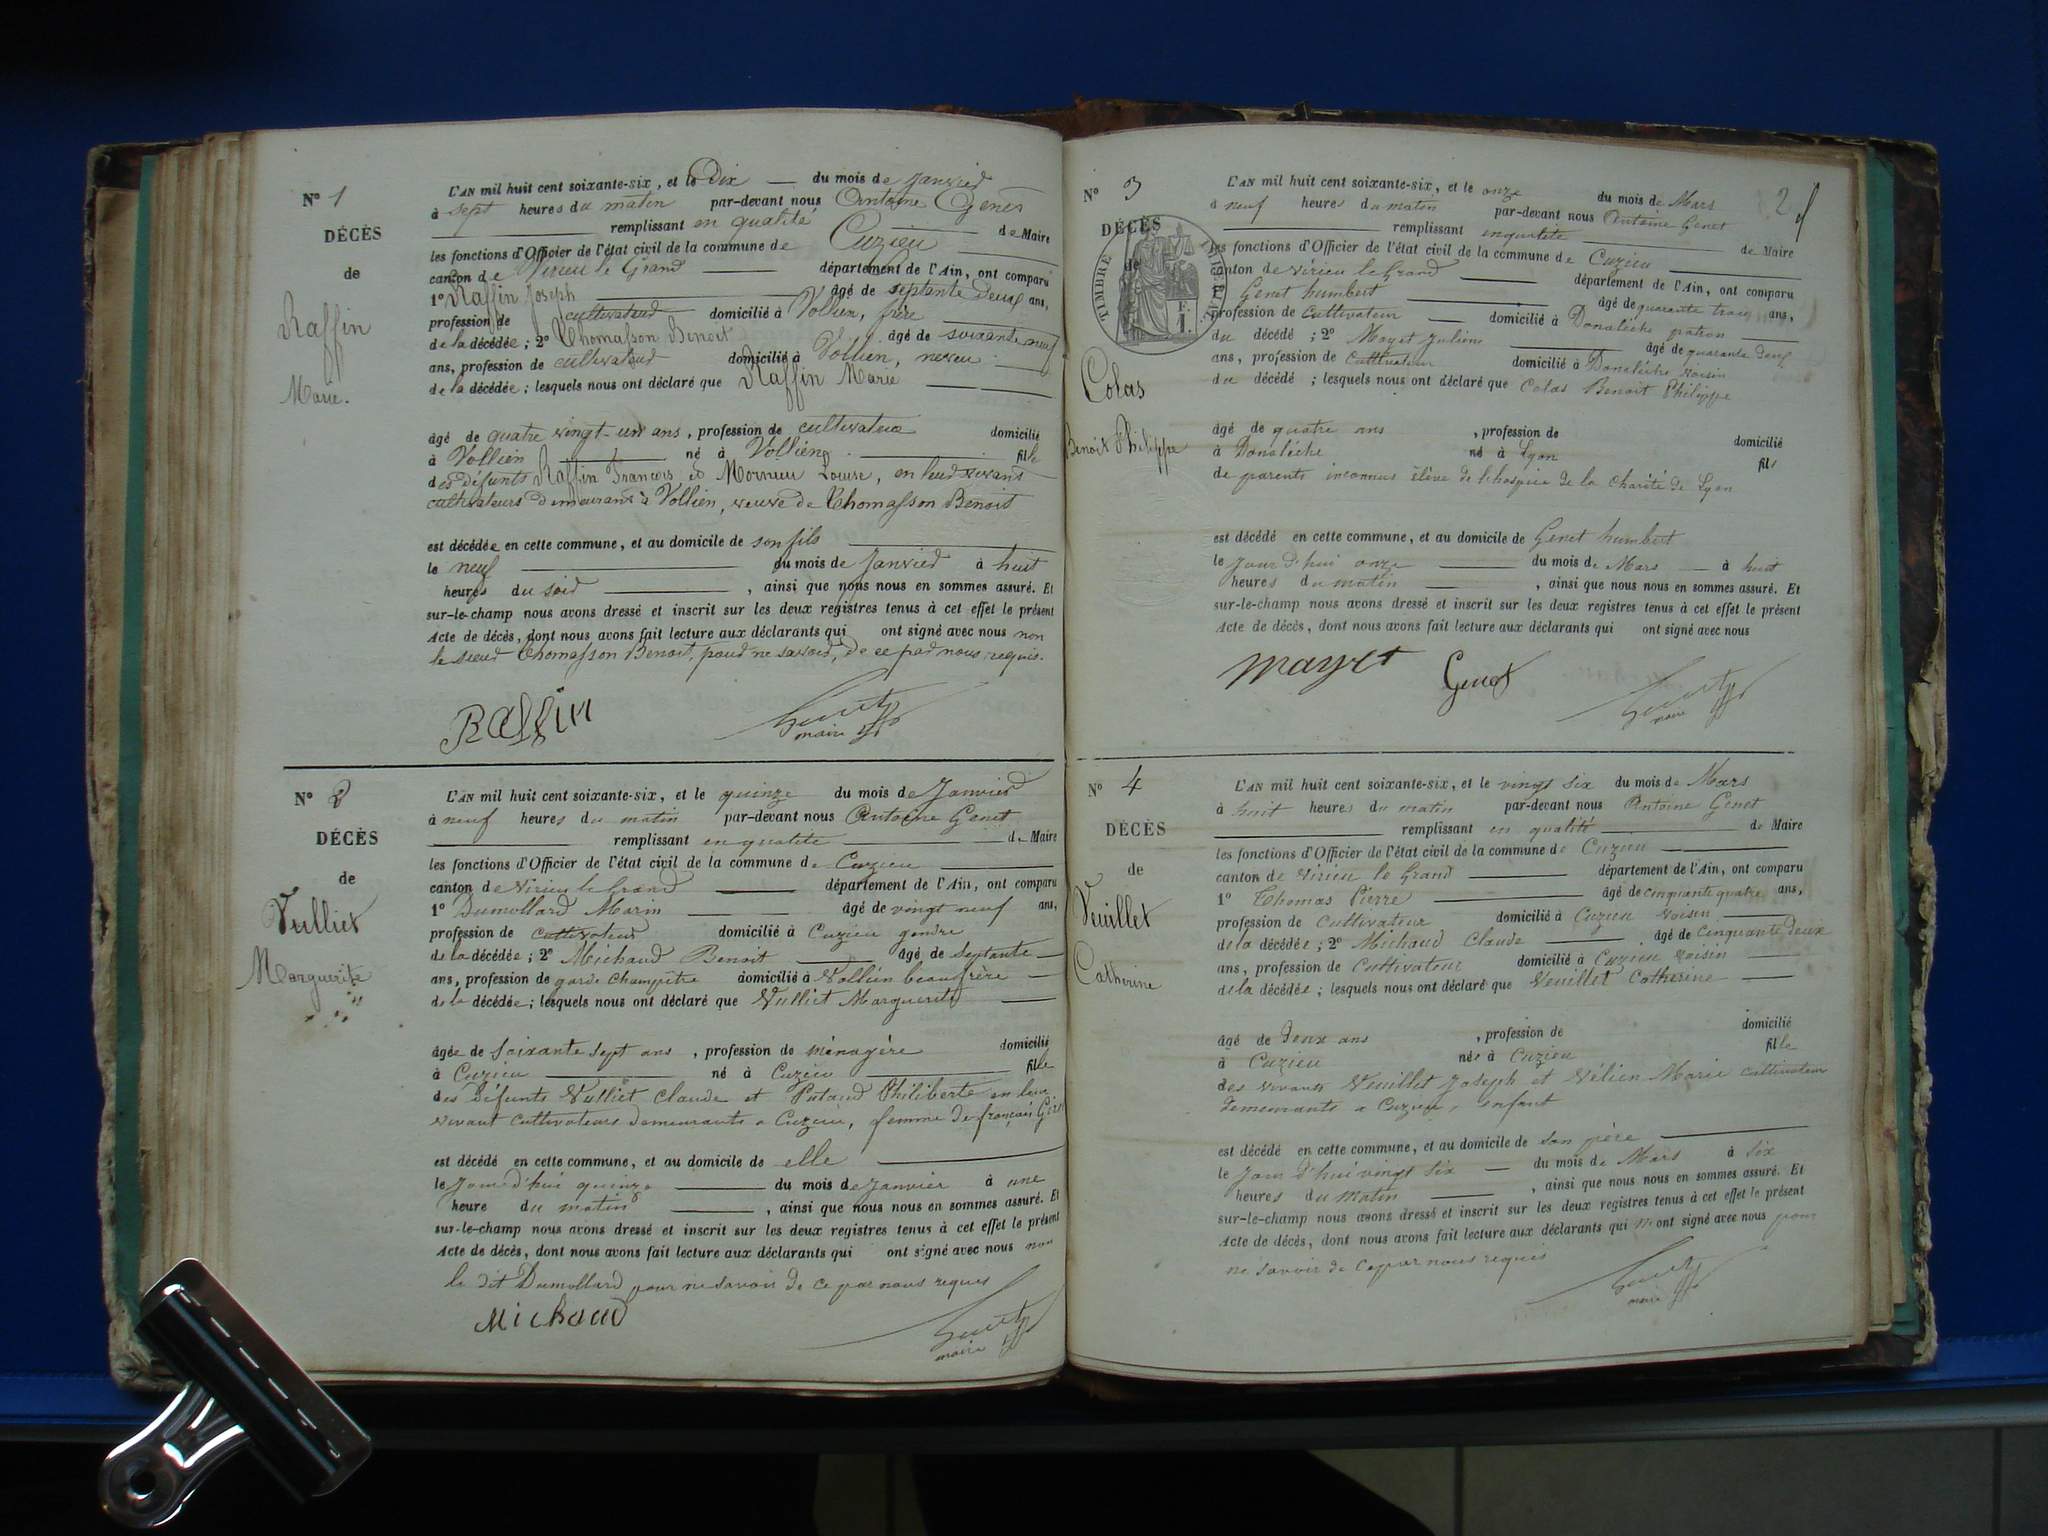 N° 1
DÉCÈS
de
Raffin
Marie.
L'AN mil huit cent soixante-six, et le Dix du mois de Janvier
à sept heures du matin par-devant nous Antoine Genet
remplissant en qualité de Maire
les fonctions d'Officier de l'état civil de la commune de Cuzieu
canton de Virieu le Grand département de l'Ain, ont comparu
1° Raffin Joseph âgé de septante deux ans,
profession de cultivateur domicilié à Vollien, frère
de la décédée; 2° Thomasson Benoit âgé de soixante neuf
ans, profession de cultivateur domicilié à Vollien, neveu
de la décédée; lesquels nous ont déclaré que Raffin Marie
âgé de quatre vingt-un ans, profession de cultivateur domicilié
à Vollien né à Vollien fille
des défunts Raffin François et Mornieu Louise, en leur vivant
cultivateurs demeurant à Vollien, veuve de Thomasson Benoit
est décédée en cette commune, et au domicile de son fils
le neuf du mois de Janvier à huit
heures du soir, ainsi que nous nous en sommes assuré. Et
sur-le-champ nous avons dressé et inscrit sur les deux registres tenus à cet effet le présent
Acte de décès, dont nous avons fait lecture aux déclarants qui ont signé avec nous non
le sieur Thomasson Benoit, pour ne savoir, de ce par nous requis.
Raffin Genet
maire
N° 2
DÉCÈS
de
Vulliet
Marguerite
L'AN mil huit cent soixante-six, et le quinze du mois de Janvier
à neuf heures du matin par-devant nous Antoine Genet
remplissant en qualité de Maire
les fonctions d'Officier de l'état civil de la commune de Cuzieu
canton de Virieu le Grand département de l'Ain, ont comparu
1° Dumollard Marin âgé de vingt neuf ans,
profession de cultivateur domicilié à Cuzieu gendre
de la décédée; 2° Michaud Benoit âgé de septante
ans, profession de garde champêtre domicilié à Vollien beau frère
de la décédée; lesquels nous ont déclaré que Vulliet Marguerite
âgée de soixante sept ans, profession de ménagère domicilié
à Cuzieu né à Cuzieu fille
des défunts Vulliet Claude et Philiberte en leur
vivant cultivateurs demeurants a Cuzieu, femme de françois
est décédé en cette commune, et au domicile de elle
le Jour d'hui quinze du mois de Janvier à une
heure du matin, ainsi que nous nous en sommes assuré. Et
sur-le-champ nous avons dressé et inscrit sur les deux registres tenus à cet effet le présent
Acte de décès, dont nous avons fait lecture aux déclarants qui ont signé avec nous non
le dit Dumollard pour ne savoir de ce par nous requis
Michaud Genet
maire
2
N° 3
DÉCÈS
de
TIMBRE IMPÉRIAL
F.
1.
Colas
Benoit Philippe
L'AN mil huit cent soixante-six, et le onze du mois de Mars
à neuf heures du matin par-devant nous Antoine Genet
remplissant en qualité de Maire
les fonctions d'Officier de l'état civil de la commune de Cuzieu
canton de Virieu le Grand département de l'Ain, ont comparu
Genet humbert âgé de quarante trois ans,
profession de cultivateur domicilié à Donalèche patron
du décédé; 2° Mayet Julien âgé de quarante deux
ans, profession de cultivateur domicilié à Donalèche voisin
du décédé; lesquels nous ont déclaré que Colas Benoit Philippe
âgé de quatre ans, profession de domicilié
à Donalèche né à Lyon fils
de parents inconnus élève de l'hospice de la Charité de Lyon
est décédé en cette commune, et au domicile de Genet humbert
le Jour d'hui onze du mois de Mars à huit
heures du matin, ainsi que nous nous en sommes assuré. Et
sur-le-champ nous avons dressé et inscrit sur les deux registres tenus à cet effet le présent
Acte de décès, dont nous avons fait lecture aux déclarants qui ont signé avec nous
Mayet Genet Genet
maire
N° 4
DÉCÈS
de
Veuillet
Catherine
L'AN mil huit cent soixante-six, et le vingt six du mois de Mars
à huit heures du matin par-devant nous Antoine Genet
remplissant en qualité de Maire
les fonctions d'Officier de l'état civil de la commune de Cuzieu
canton de Virieu le Grand département de l'Ain, ont comparu
1° Thomas Pierre âgé de cinquante quatre ans,
profession de cultivateur domicilié à Cuzieu voisin
de la décédée; 2° Michaud Claude âgé de cinquante deux
ans, profession de cultivateur domicilié à Cuzieu voisin
de la décédée; lesquels nous ont déclaré que Veuillet Catherine
âgé de Deux ans, profession de domicilié
à Cuzieu née à Cuzieu fille
des vivants Veuillet Joseph et Vélien Marie cultivateur
demeurants a Cuzieu, enfant
est décédé en cette commune, et au domicile de son père
le Jour d'hui vingt six du mois de Mars à six
heures du matin, ainsi que nous nous en sommes assuré. Et
sur-le-champ nous avons dressé et inscrit sur les deux registres tenus à cet effet le présent
Acte de décès, dont nous avons fait lecture aux déclarants qui n'ont signé avec nous pour
ne savoir de ce par nous requis
Genet
maire